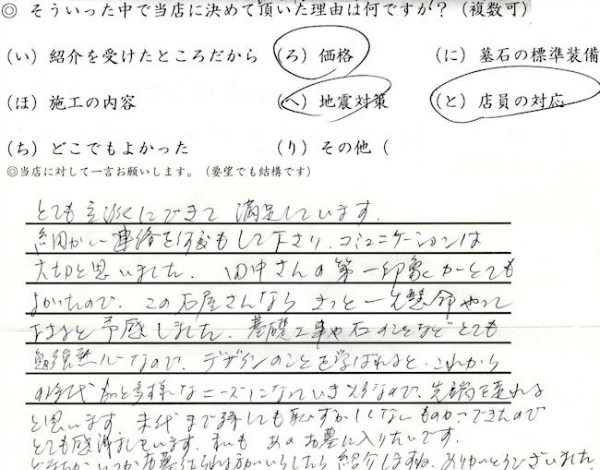 ◎ そういった中で当店に決めて頂いた理由は何ですか？（複数可）
(い) 紹介を受けたところだから (ろ) 価格 (に) 墓石の標準装備
(ほ) 施工の内容 (へ) 地震対策 (と) 店員の対応
(ち) どこでもよかった (り) その他（
◎当店に対して一言お願いします。（要望でも結構です）
とても立派にできて 満足しています.
細かい連絡を何度もして下さり、コミュニケーションは
大切と思いました. 田中さんの第一印象がとても
よかったので、この石屋さんなら きっと一生懸命やって
下さると予感しました. 基礎工事や石のことなど とても
勉強熱心なので、デザインのことも学ばれると、これから
の時代 多様なニーズになっていきそうなので、先端を走れる
と思います 末代まで 恥ずかしくないものができたので
とても感謝しています. 私も あのお墓に入りたいです.
いつか お墓 いらしたら 紹介しますね. ありがとうございました